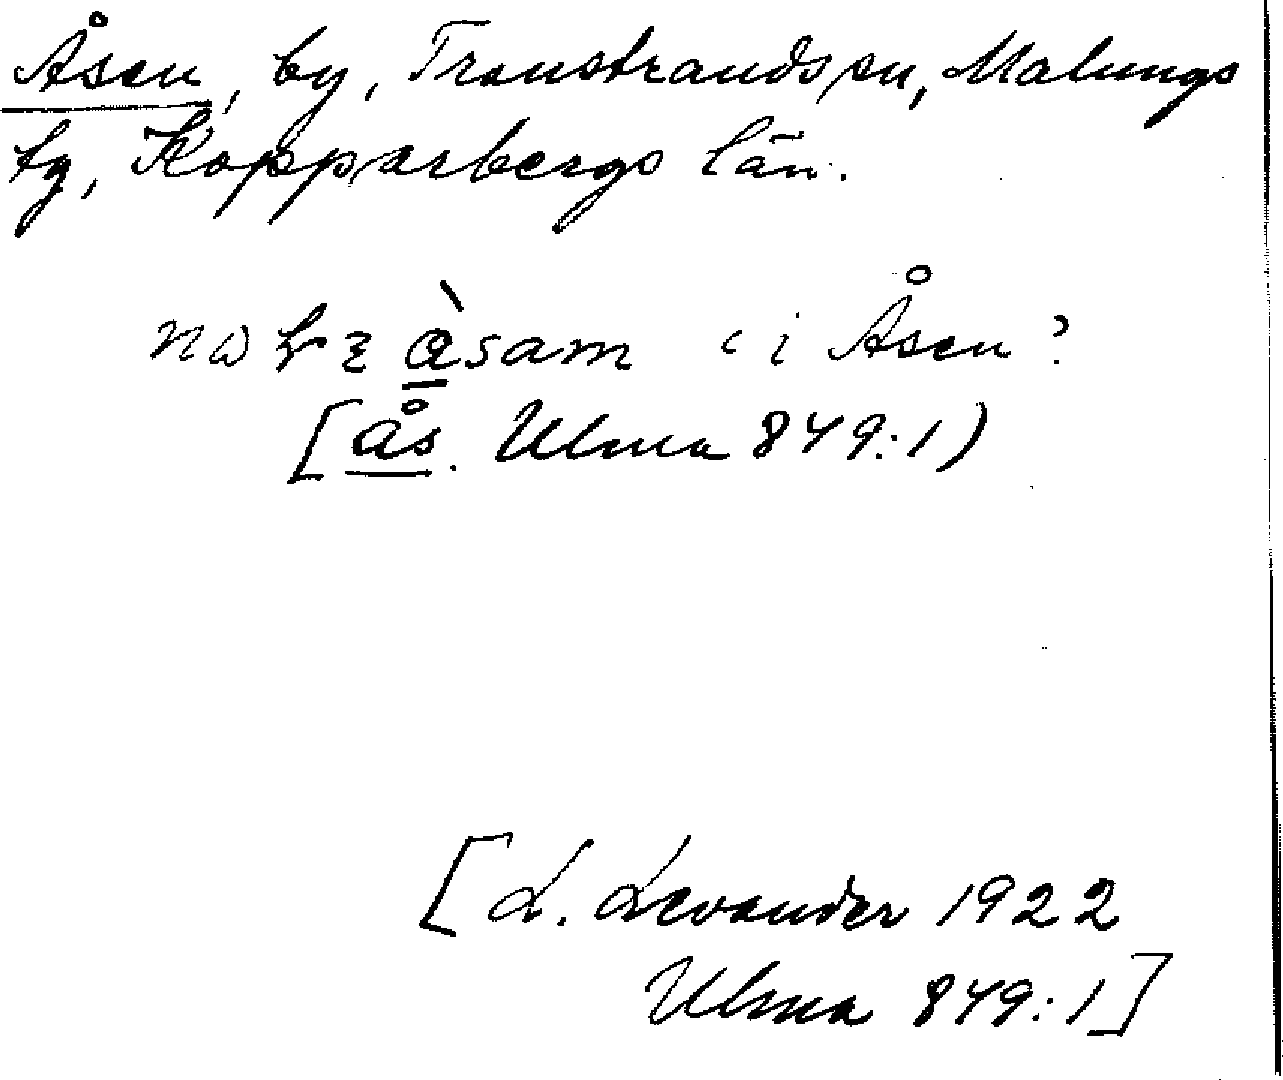 Åsen, by, Transtrands sn, Malungs
tg, Kopparbergs län.
àsam i Åsen?
[ås. Ulma 849:1)
[L. Levander 1922
Ulma 849:1]